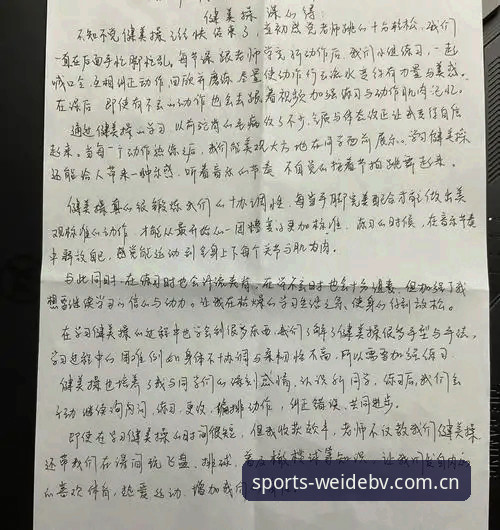 健美操 课心得：
不知不觉健美操课就快结束了，当初感觉老师跳的十分轻松，我们
一直在后面手忙脚忙乱。每节课跟老师学完新动作后，我们小组练习，一起
喊口令，互相纠正动作 回顾并磨练，尽量使动作行云流水更得有力量与美感。
在课后 即使有不会的动作也会去跟着视频加强练习与动作肌肉记忆。
通过健美操的学习 以前驼背的毛病改了不少，气质与体态改正让我变得自信
起来。当每一个动作熟练之后，我们能美观大方地在同学面前展示。学习健美操
还能给人带来一种乐感，听着音乐的节奏 不自觉的按着节拍跳舞起来。
健美操真的很锻炼我们的协调性，每当手脚完美配合才能做出美
观标准的动作，才能从最开始的一团糟变得更加标准。练习的时候，在音乐节奏
中释放自己，感觉能运动到全身上下每个关节与肌肉。
与此同时，在练习时也会汗流夹背，在学不会时也会十分沮丧，但加强了我
想要继续学习的信心与动力。让我在枯燥的学习生活之余，使身心得到放松。
在学习健美操的过程中也学会到很多东西，我们了解了健美操很多手型与手法，
学习过程中的困难例如身体不协调与柔韧性不高，所以需要加强练习
健美操也培养了我与同学们的深刻感情，认识新同学，练习后，我们会
主动继续询问 练习、更改、编排动作，纠正错误、共同进步。
即使在学习健美操的时间很短，但我收获颇丰，老师不仅教我们健美操
还带我们在课间玩飞盘、排球，让我们
的喜欢体育，热爱运动，增加我
sports-weidebv.com.cn